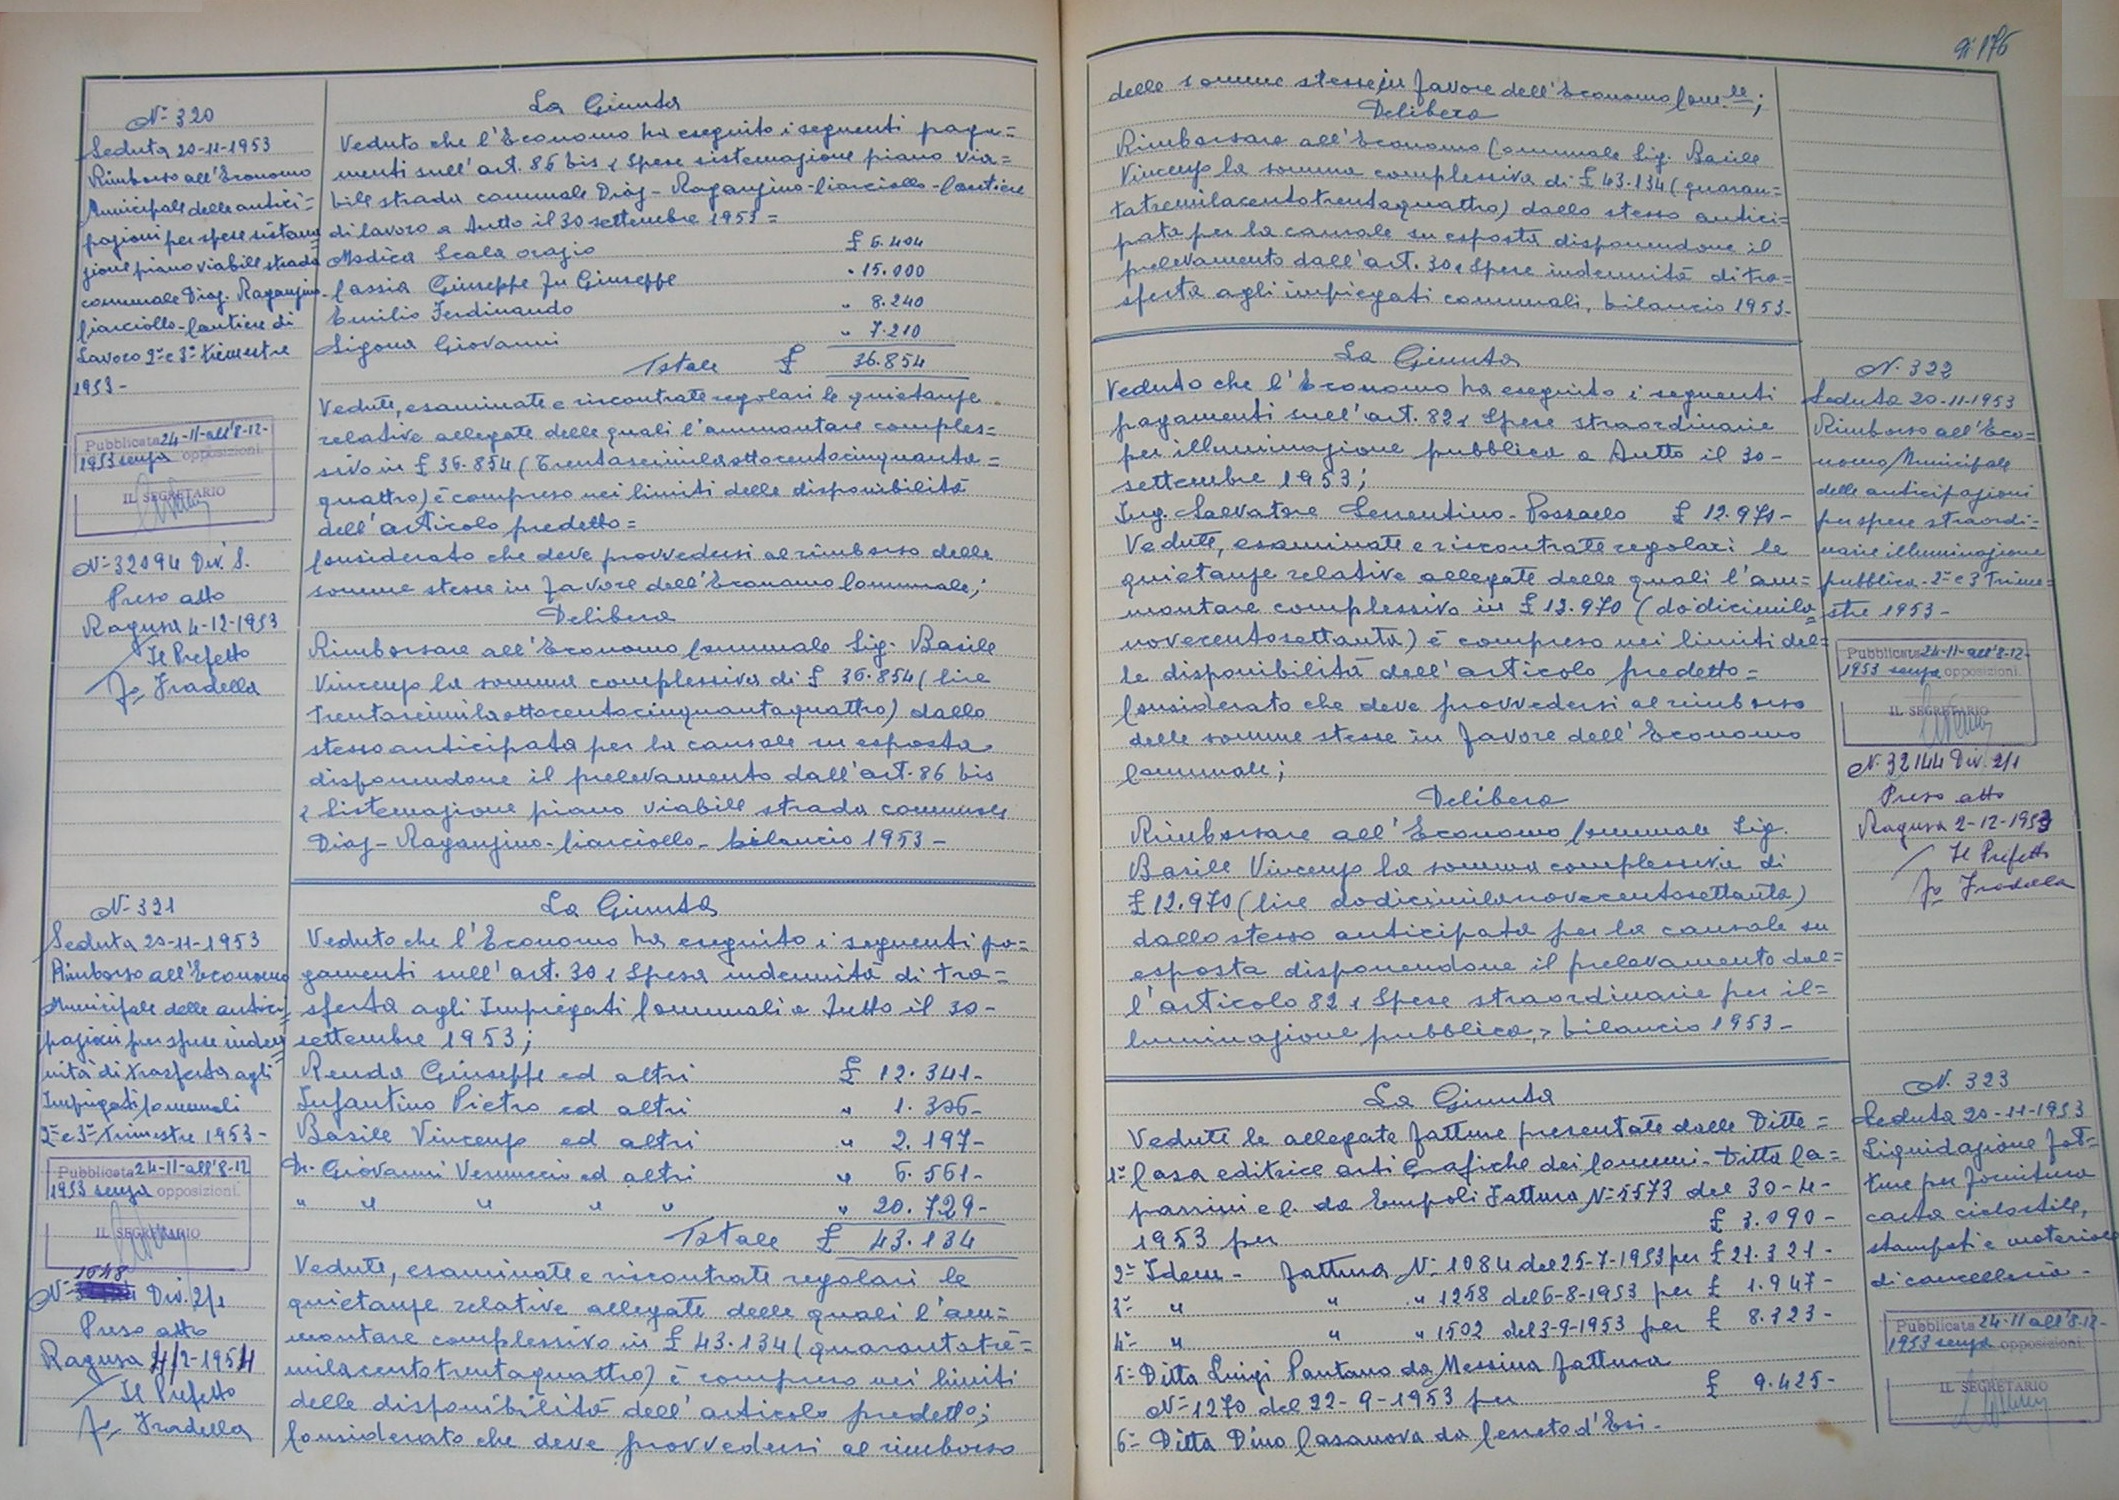 N° 320
Seduta 20-11-1953
Rimborso all'Economo
Municipale delle antici=
pazioni per spese sistema=
zione piano viabile strada
comunale Diaz-Raganzino-
Ciarciollo-Cantiere di
Lavoro 2° e 3° trimestre
1953-
Pubblicata 24-11-all'8-12-
1953 senza opposizioni.
IL SEGRETARIO
N° 32094 Div. S.
Preso atto
Ragusa 4-12-1953
Il Prefetto
Fo Fradella
La Giunta
Veduto che l'Economo ha eseguito i seguenti paga=
menti sull'art. 86 bis, Spese sistemazione piano via=
bile strada comunale Diaz-Raganzino-Ciarciollo-Cantiere
di lavoro a tutto il 30 settembre 1953=
Modica Scala Orazio £ 6.404
Cassia Giuseppe fu Giuseppe " 15.000
Emilio Ferdinando " 8.240
Sigona Giovanni " 7.210
Totale £ 36.854
Vedute, esaminate e riscontrate regolari le quietanze
relative allegate delle quali l'ammontare comples=
sivo in £ 36.854 (Trentaseimilaottocentocinquanta=
quattro) è compreso nei limiti delle disponibilità
dell'articolo predetto=
Considerato che deve provvedersi al rimborso delle
somme stesse in favore dell'Economo Comunale;
Delibera
Rimborsare all'Economo Comunale Sig. Basile
Vincenzo la somma complessiva di £ 36.854 (lire
trentaseimilaottocentocinquantaquattro) dallo
stesso anticipata per la causale su esposta
disponendone il prelevamento dall'art. 86 bis
, Sistemazione piano viabile strada comunale
Diaz-Raganzino-Ciarciollo- bilancio 1953-
N° 321
Seduta 20-11-1953
Rimborso all'Economo
Municipale delle antici=
pazioni per spese inden=
nità di trasferta agli
Impiegati Comunali
2° e 3° trimestre 1953-
Pubblicata 24-11-all'8-12
1953 senza opposizioni.
IL SEGRETARIO
N° 1648 Div. 2/1
Preso atto
Ragusa 4/2-1954
Il Prefetto
Fo Fradella
La Giunta
Veduto che l'Economo ha eseguito i seguenti pa=
gamenti sull'art. 30, Spesa indennità di tra=
sferta agli Impiegati Comunali a tutto il 30-
settembre 1953;
Renda Giuseppe ed altri £ 12.341-
Infantino Pietro ed altri " 1.306-
Basile Vincenzo ed altri " 2.197-
Dr. Giovanni Vernuccio ed altri " 6.561-
" " " " " " 20.729-
Totale £ 43.134
Vedute, esaminate e riscontrate regolari le
quietanze relative allegate delle quali l'am=
montare complessivo in £ 43.134 (quarantatre=
milacentotrentaquattro) è compreso nei limiti
delle disponibilità dell'articolo predetto;
Considerato che deve provvedersi al rimborso
delle somme stesse in favore dell'Economo Com.le;
Delibera
Rimborsare all'Economo Comunale Sig. Basile
Vincenzo la somma complessiva di £ 43.134 (quaran=
tatremilacentotrentaquattro) dallo stesso antici=
pata per la causale su esposta disponendone il
prelevamento dall'art. 30, Spese indennità di tra=
sferta agli impiegati comunali, bilancio 1953-
La Giunta
Veduto che l'Economo ha eseguito i seguenti
pagamenti sull'art. 82, Spese straordinarie
per illuminazione pubblica a tutto il 30-
settembre 1953;
Ing. Salvatore Serrentino-Possaelo £ 12.970-
Vedute, esaminate e riscontrate regolari le
quietanze relative allegate delle quali l'am=
montare complessivo in £ 12.970 (dodicimila=
novecentosettanta) è compreso nei limiti del=
le disponibilità dell'articolo predetto=
Considerato che deve provvedersi al rimborso
delle somme stesse in favore dell'Economo
Comunale;
Delibera
Rimborsare all'Economo Comunale Sig.
Basile Vincenzo la somma complessiva di
£ 12.970 (lire dodicimilanovecentosettanta)
dallo stesso anticipata per la causale su
esposta disponendone il prelevamento dal=
l'articolo 82, Spese straordinarie per il=
luminazione pubblica, bilancio 1953-
N. 322
Seduta 20-11-1953
Rimborso all'Eco=
nomo Municipale
delle anticipazioni
per spese straordi=
narie illuminazione
pubblica-2° e 3° Trime=
stre 1953-
Pubblicata 24-11-all'8-12-
1953 senza opposizioni.
IL SEGRETARIO
N. 32144 Div. 2/1
Preso atto
Ragusa 2-12-1953
Il Prefetto
Fo Fradella
La Giunta
Vedute le allegate fatture presentate dalle Ditte=
1° Casa editrice arti Grafiche dei Comuni-Ditta Ca=
parrini e C. da Empoli Fattura N° 5573 del 30-4-
1953 per £ 3.090-
2° Idem- fattura N° 1084 del 25-7-1953 per £ 21.321-
3° " " " 1258 del 6-8-1953 per £ 1.947-
4° " " " 1502 del 3-9-1953 per £ 8.723-
5° Ditta Luigi Pantano da Messina fattura
N° 1270 del 22-9-1953 per £ 9.425-
6° Ditta Dino Casanova da Cerreto d'Esi-
N. 323
Seduta 20-11-1953
Liquidazione fat=
ture per fornitura
carta ciclostile,
stampati e materiale
di cancelleria-
Pubblicata 24-11 all'8-12-
1953 senza opposizioni.
IL SEGRETARIO